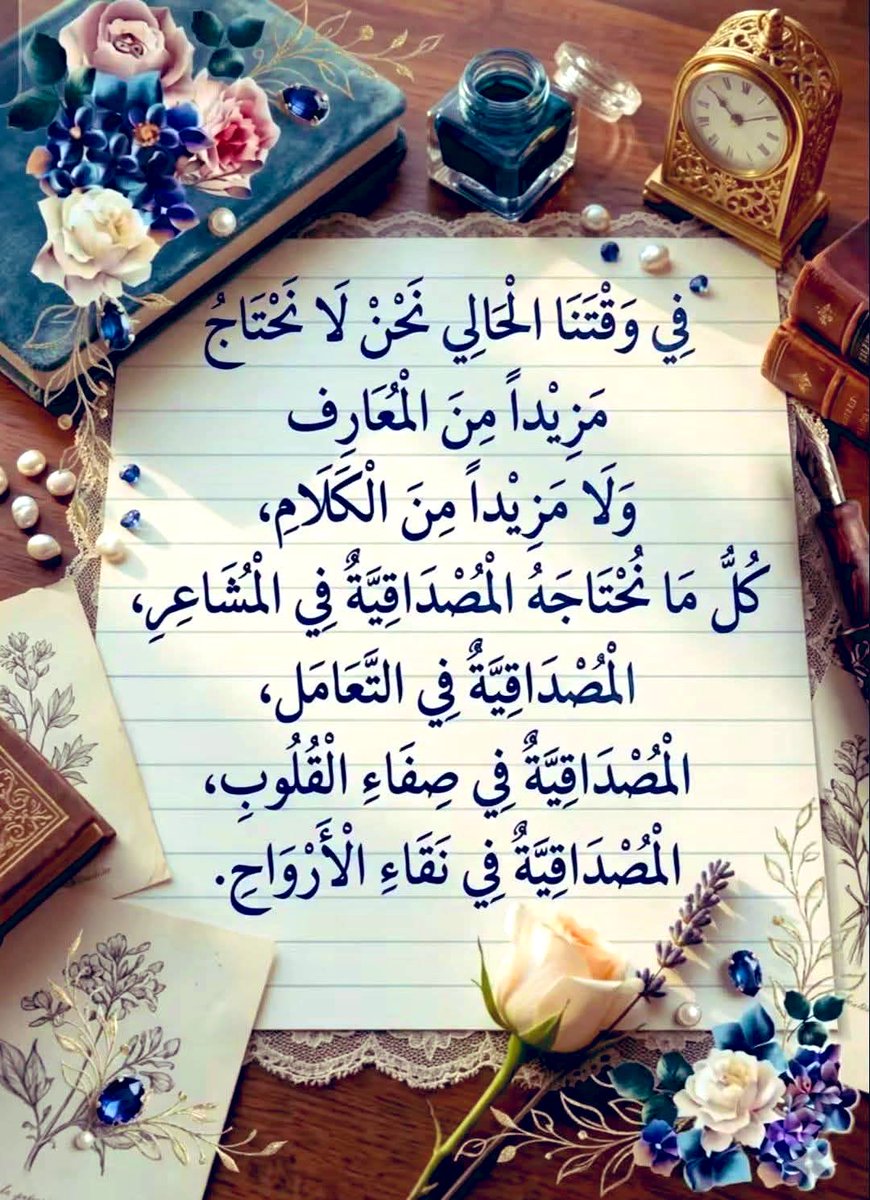 فِي وَقْتَنَا الْحَالِي نَحْنْ لَا نَحْتَاجُ
مَزِيْداً مِنَ الْمُعَارِف
وَلَا مَزِيْداً مِنَ الْكَلَامِ،
كُلُّ مَا نُحْتَاجَهُ الْمُصْدَاقِيَّةٌ فِي الْمُشَاعِرِ،
الْمُصْدَاقِيَّةٌ فِي التَّعَامَل،
الْمُصْدَاقِيَّةٌ فِي صِفَاءِ الْقُلُوبِ،
الْمُصْدَاقِيَّةٌ فِي نَقَاءِ الْأَرْوَاحِ.